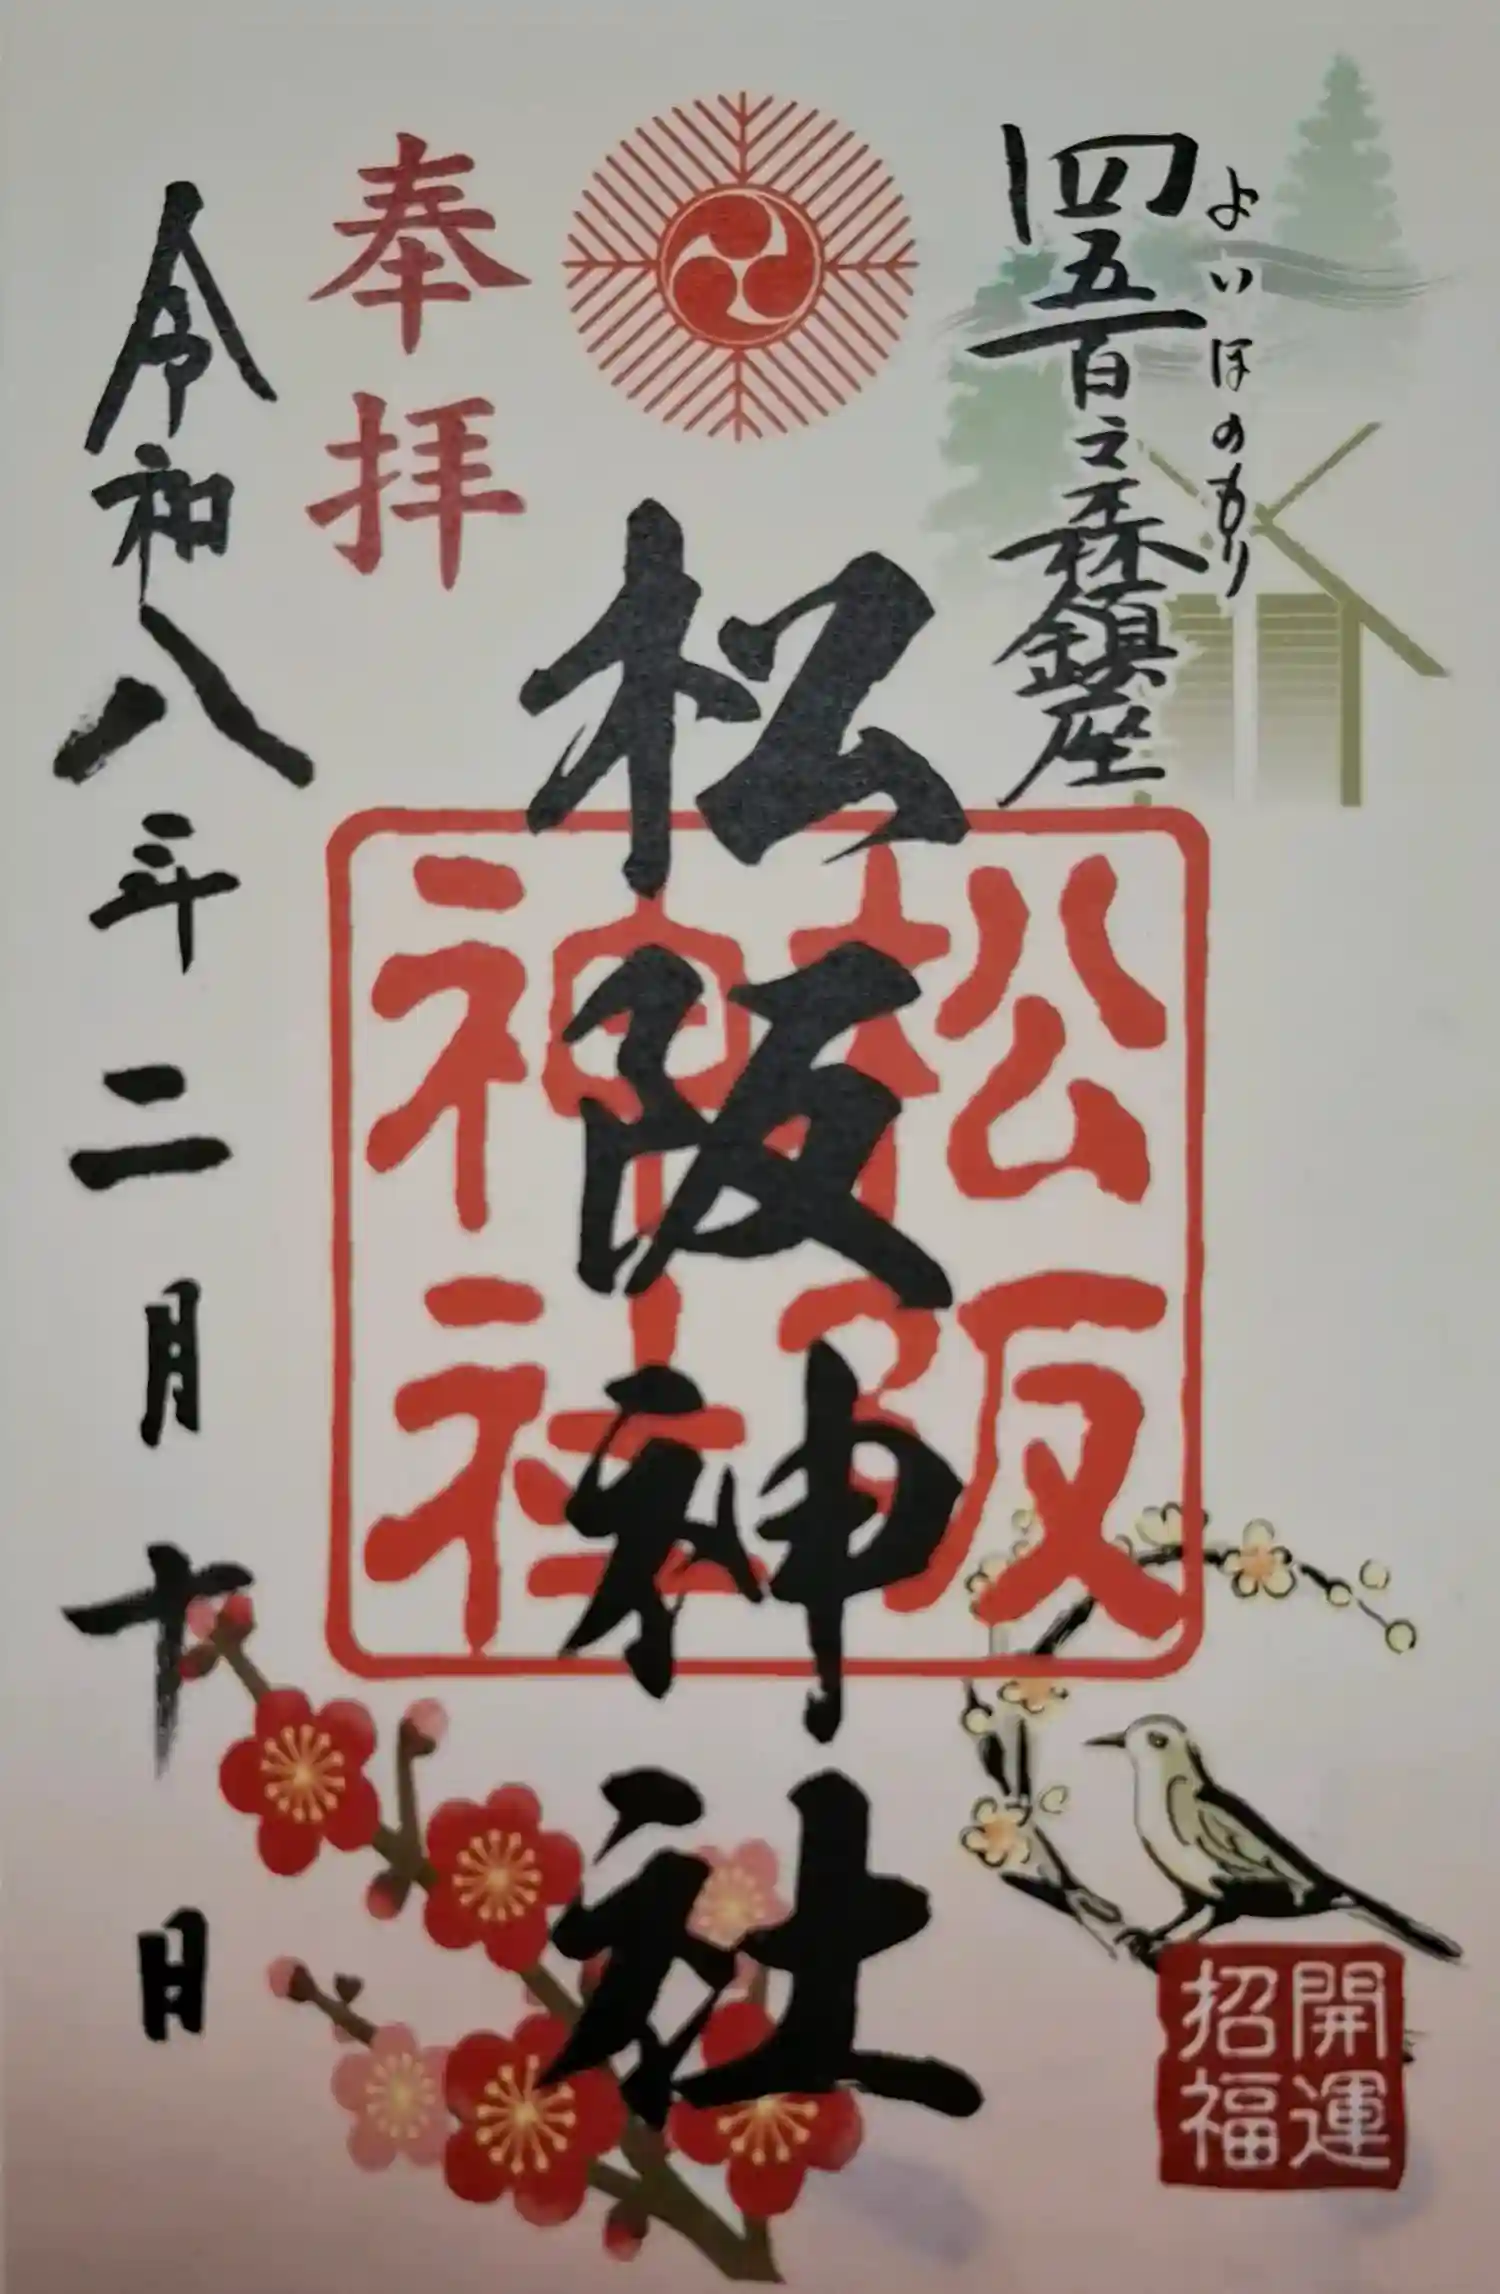 よいほのもり
四五百之森鎮座
松阪神社
奉拝
令和八年二月十日
松阪
神社
開運
招福